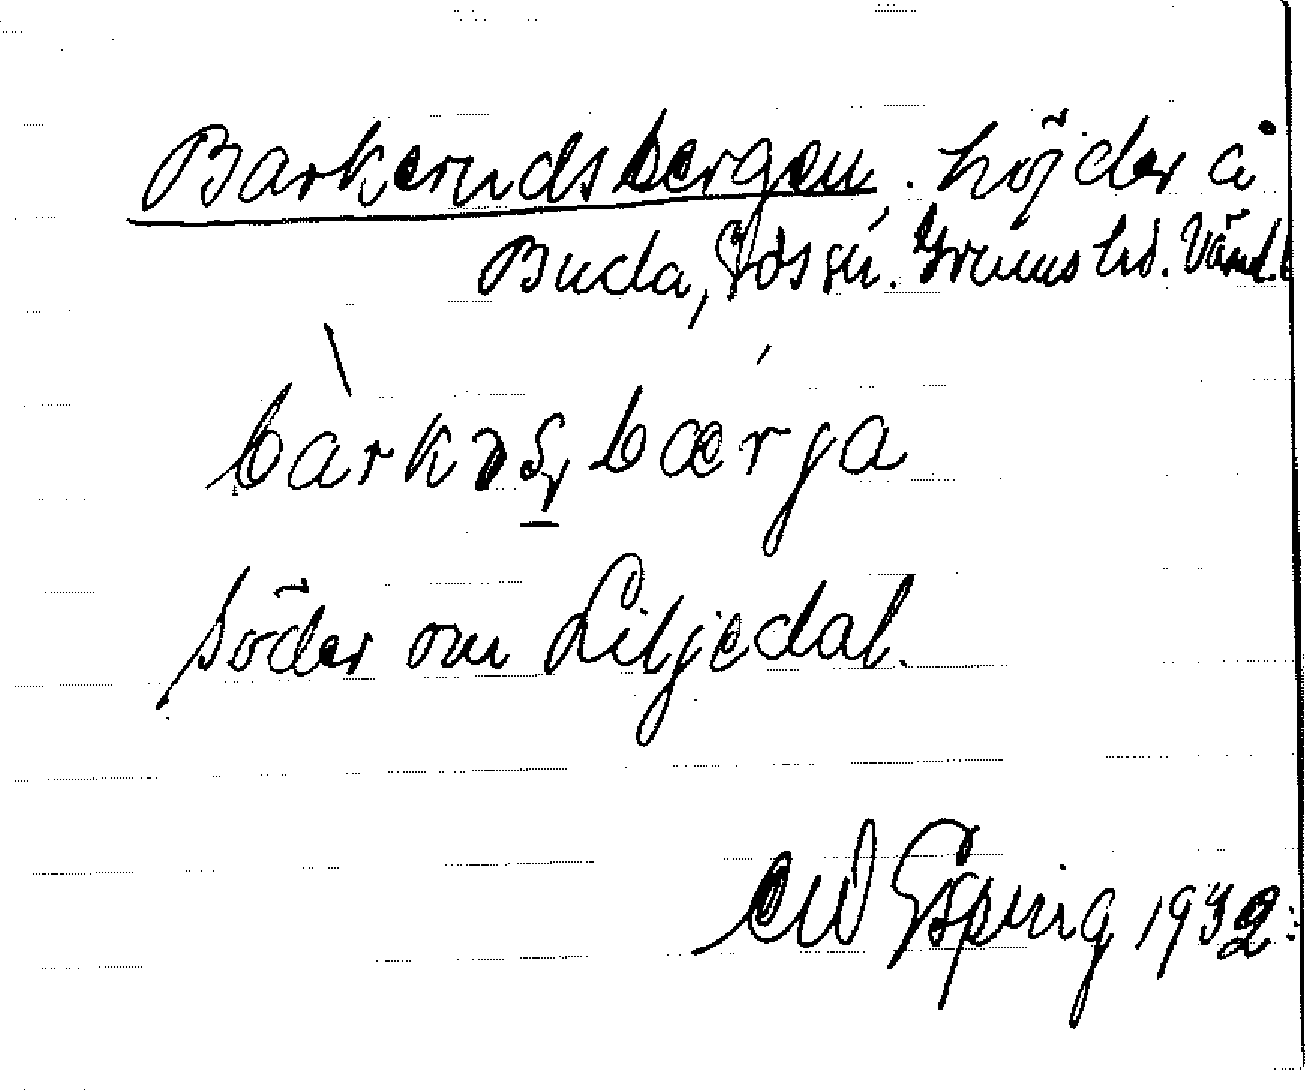 Barkerudsbergen. höjder å
Buda, sn. Grums hd. Värml.
bàrkəsbærja
söder om Liljedal.
CW Esping 1932